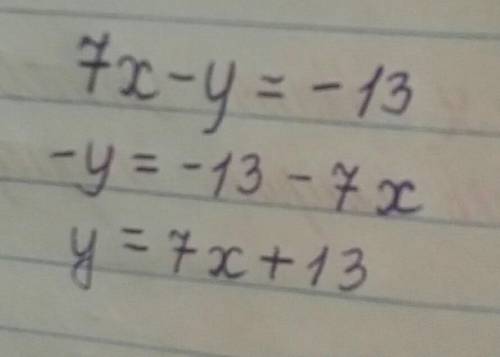 7x - y = -13
-y = -13 - 7x
y = 7x + 13